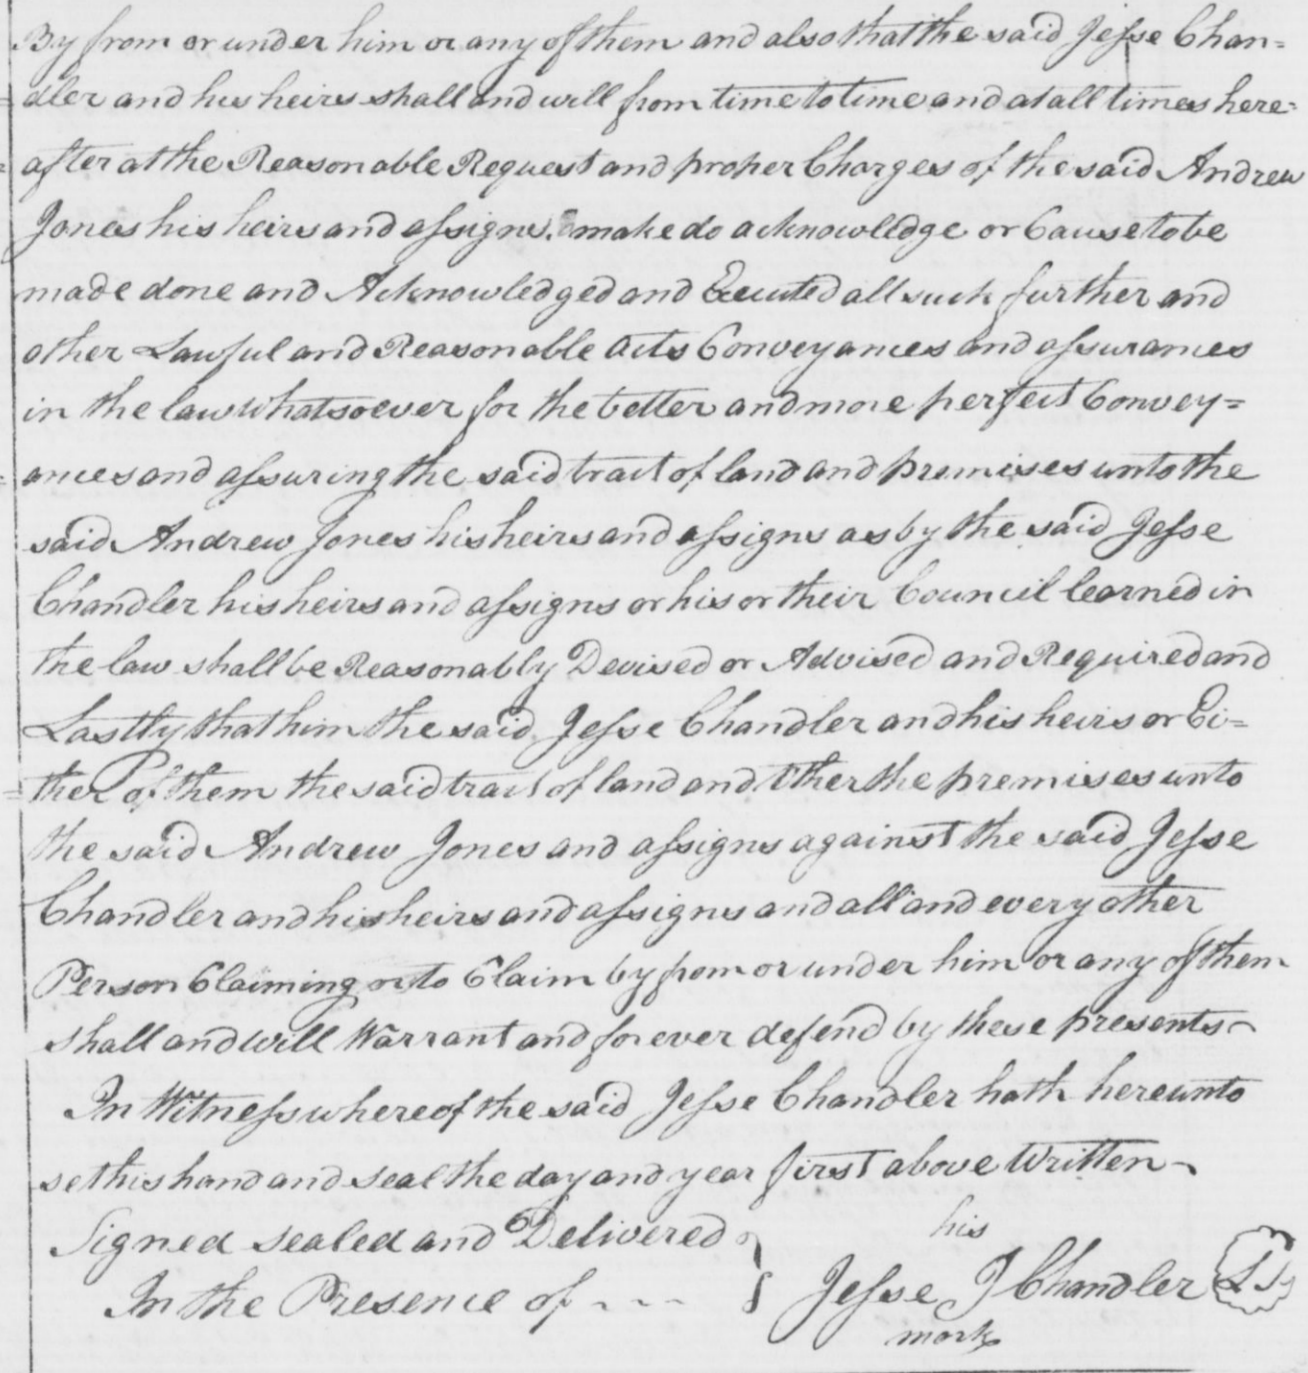 By from or under him or any of them and also that the said Jesse Chan=
=dler and his heirs shall and will from time to time and at all times here=
=after at the Reasonable Request and proper Charges of the said Andrew
Jones his heirs and assigns. make do acknowlledge or Cause to be
made done and Acknowledged and Executed all such further and
other Lawful and Reasonable acts Conveyances and assurances
in the law whatsoever for the better and more perfect Convey=
=ances and assuring the said tract of land and premises unto the
said Andrew Jones his heirs and assigns as by the said Jesse
Chandler his heirs and assigns or his or their Council learned in
the law shall be Reasonably Devised or Advised and Required and
Lastly that him the said Jesse Chandler and his heirs or Ei=
=ther of them the said tract of land and other the premises unto
the said Andrew Jones and assigns against the said Jesse
Chandler and his heirs and assigns and all and every other
Person Claiming or to Claim by from or under him or any of them
shall and will Warrant and forever defend by these presents
In Witness whereof the said Jesse Chandler hath hereunto
set his hand and seal the day and year first above Written
Signed sealed and Delivered
In the Presence of
his
Jesse J Chandler L S
mark